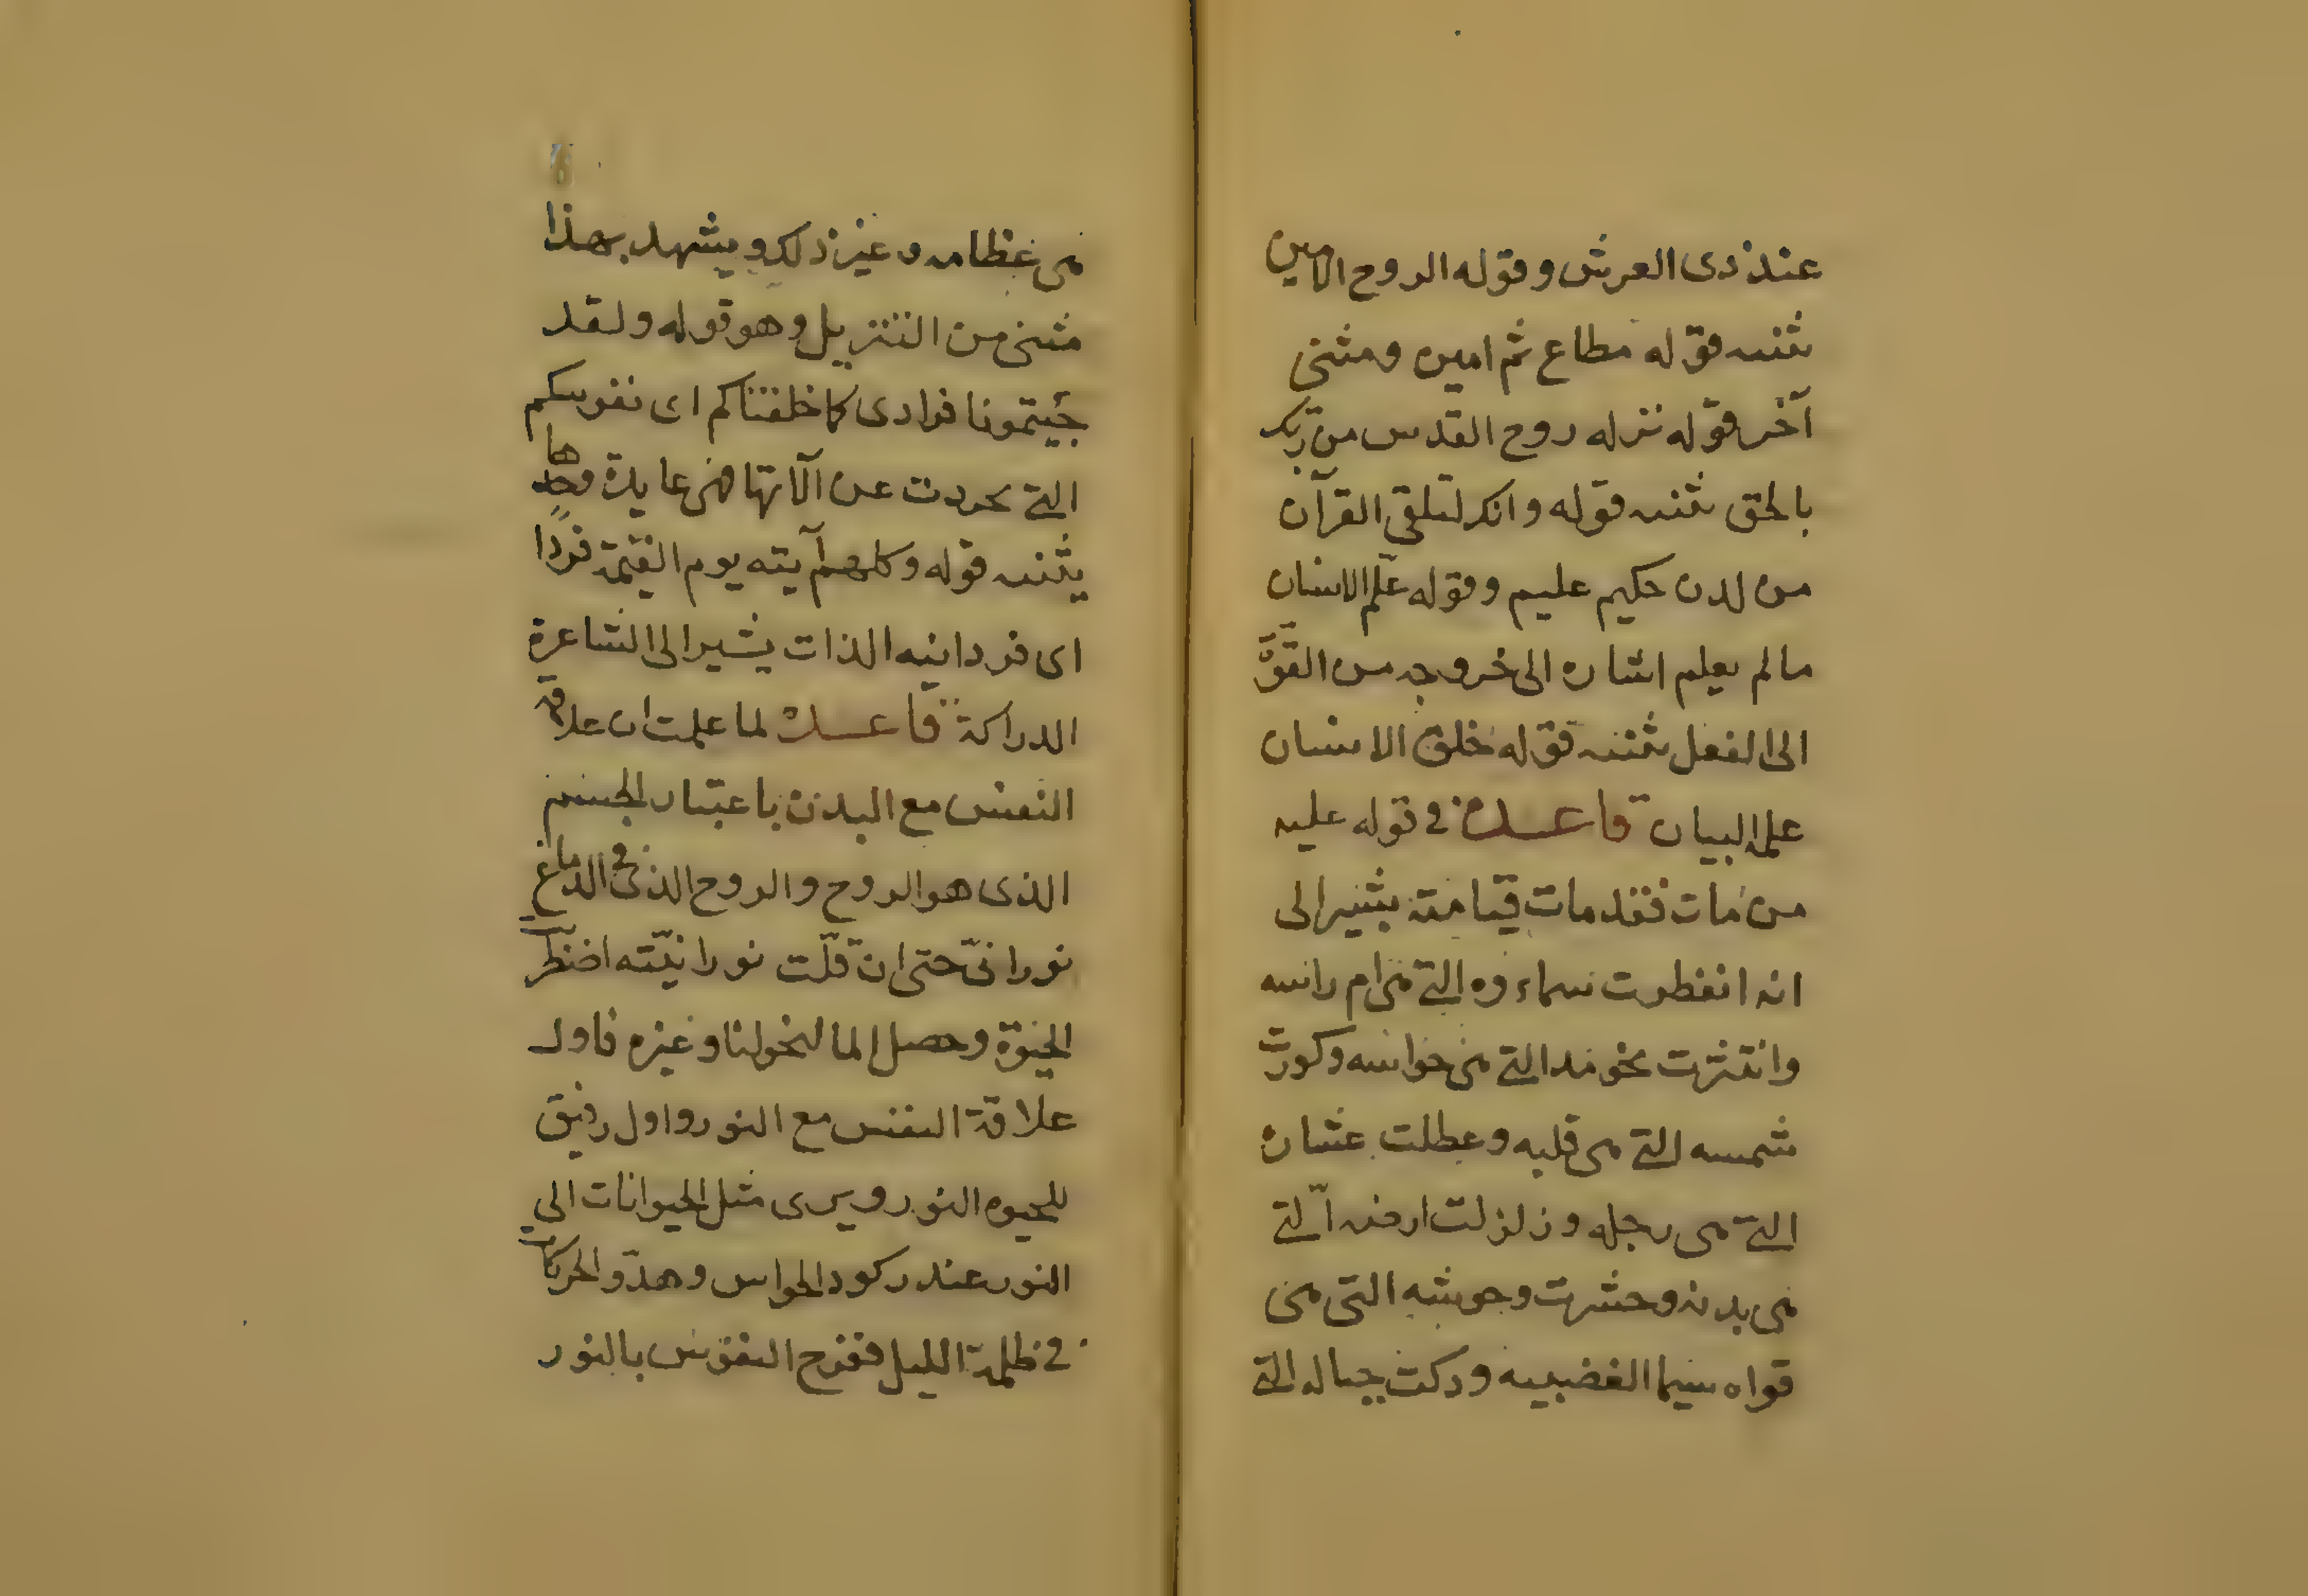 عند ذى العرش وقوله الروح الامين
مثنيه قوله مطاع ثم امين ومثنى
آخر قوله نزله روح القدس من ربك
بالحق مثنيه قوله وانك لتلقى القرآن
من لدن حكيم عليم وقوله علّم الانسان
مالم يعلم اشاره الى خروجه من القوّة
الى الفعل مثنيه قوله خلق الانسان
علمه البيان قاعده فى قوله عليه
من مات فقد مات قيامته يشير الى
انه انفطرت سماءوه التى هى ام راسه
وانتثرت نجومه التى هى حواسه وكورت
شمسه التى هى قلبه وعطلت عشاره
التى هى رجله وزلزلت ارضه الّتى
هى بدنه وحشرت وحوشه التى هى
قواه سيما الغضبيه ودكت جباله التى
هى عظامه وغير ذلك ويشهد بهذا
مثنى من التنزيل وهو قوله ولقد
جئيتمونا فرادى كما خلقناكم اى نفوسكم
التى تجردت عن آلاتها فهى عايدة وحدها
يثنيه قوله وكلهم آيته يوم القيمة فردًا
اى فردانيه الذات يشير الى الشاعرة
الدراكة قاعده لما علمت ان علاقة
النفس مع البدن باعتبار الجسم
الذى هو الروح والروح الذى فى الدماغ
نورانىّ حتى ان قلّت نورانيّته اضطر
الحيوة وحصل المالنخوليا وغيره فاول
علاقة النفس مع النور واول رفيق
للحيوه النور ويرى مثل الحيوانات الى
النور عند ركود الحواس وهدّو الحركات
فى ظلمة الليل ففرح النفوس بالنور